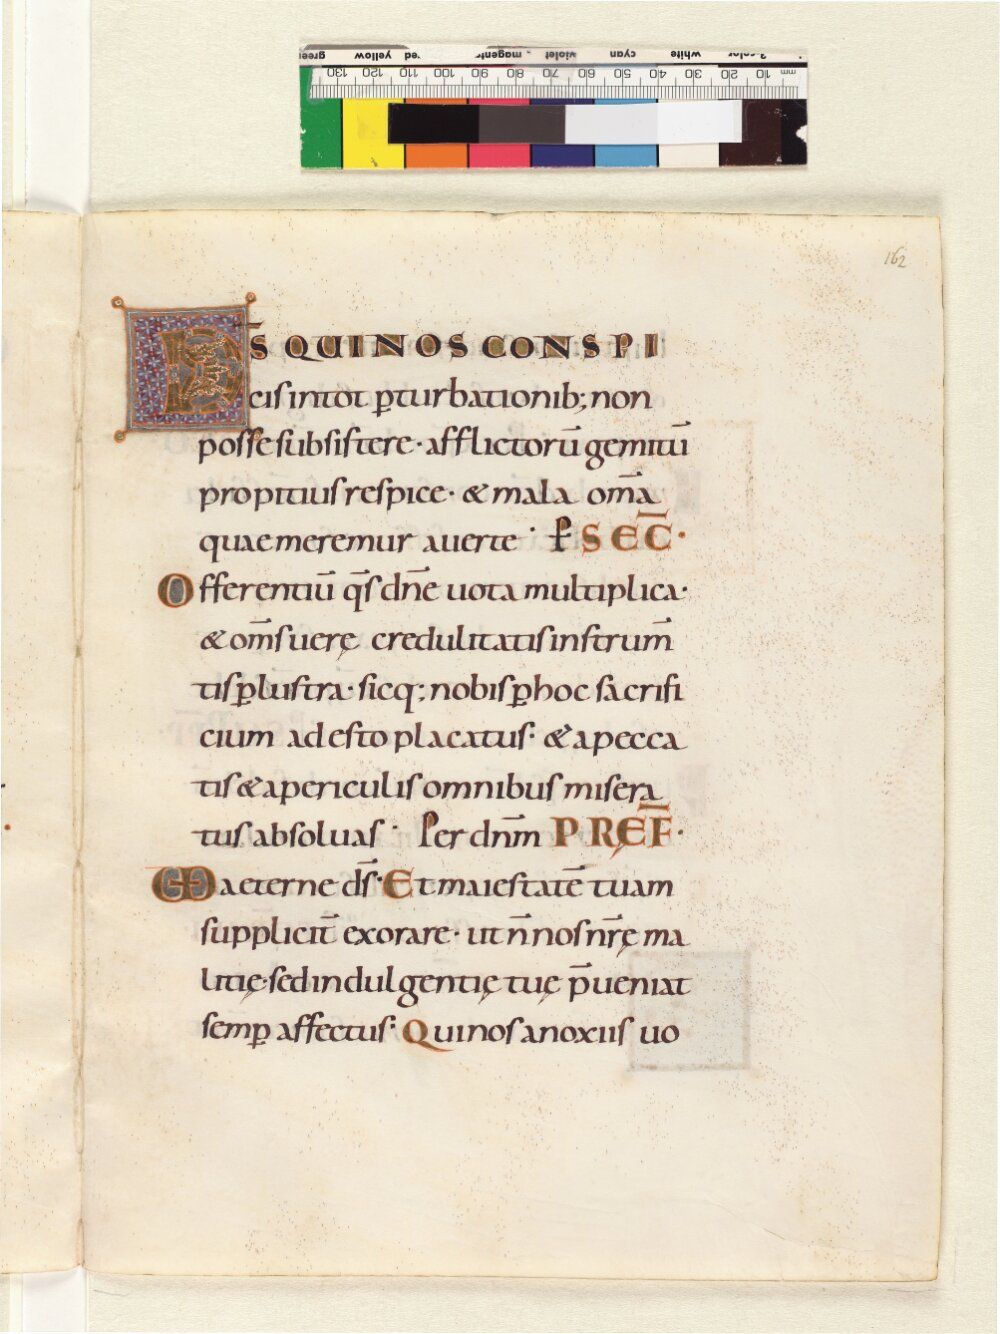 mm 10 20 30 40 50 60 70 80 90 100 110 120 130
white cyan violet magenta red yellow green
162
DS̄ QUI NOS CONSPI
cis in tot p̲turbationib; non
posse subsistere · afflictorū gemitū
propitius respice · & mala om̄a
quae meremur auerte · ꝑ SEC̄ ·
Offerentiū q̄s dn̄e uota multiplica ·
& om̄s uerę credulitatis instrum̄
tis ꝑlustra · sicq; nobis ꝑ hoc sacrifi
cium adesto placatus · & a pecca
tis & a periculis omnibus misera
tus absoluas · Per dn̄m PREF̄ ·
UD aeterne ds̄ · Et maiestatē tuam
suppliciT̄ exorare · ut n̄ nos nr̄ę ma
litię · sed indulgentię tuę p̄ueniat
semꝑ affectus · Qui nos a noxiis uo